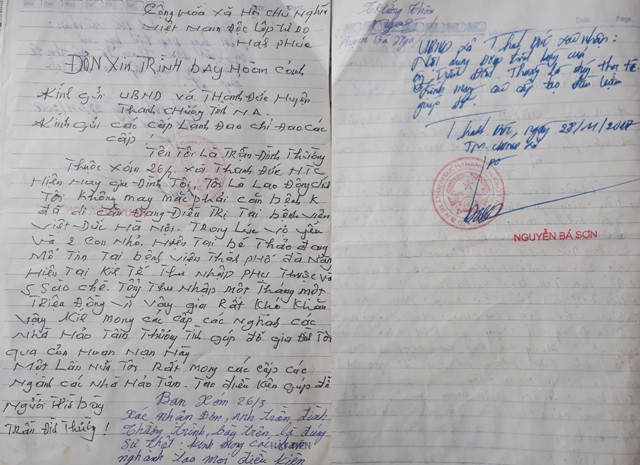 Cộng Hòa Xã Hội Chủ Nghĩa
Việt Nam Độc Lập Tự Do
Hạnh Phúc
ĐƠN XIN TRÌNH bày Hoàn Cảnh
Kính Gửi UBND Xã Thanh Đức Huyện
Thanh Chương Tỉnh N A.
Kính Gửi các cấp Lãnh Đạo chỉ Đạo các
cấp
Tên Tôi Là Trần Đình Thường
Thuộc Xóm 26/3 xã Thanh Đức H T C
Hiện Nay gia Đình Tôi, Tôi Là Lao Động chính
Tôi Không may mắc phải căn bệnh K
đã di căn Đang Điều Trị Tại bệnh viện
Việt Đức Hà Nội. Trong Lúc vợ yếu
Và 2 con Nhỏ. Hiện Tại bé Thảo đang
Mổ Tim Tại bệnh viện Thành phố đà Nẵng
Hiện Tại Kinh Tế Thu Nhập Phụ Thuộc và
5 Sào chè. Tổng Thu Nhập một Tháng một
Triệu Đồng vì Vậy gia Rất Khó Khăn
Vậy Kính mong các cấp các Nghành các
Nhà Hảo Tâm Thương Tình giúp đỡ gia Đình Tôi
qua cơn Hoạn Nạn Này
Một Lần Nữa Tôi Rất mong các cấp các
Ngành các Nhà Hảo Tâm. Tạo điều Kiện giúp đỡ
Người Trình bày
Trần Đình Thường!
Ban Xóm 26/3
Xác nhận Đơn, Anh Trần đình
Thường trình bày trên là đúng
Sự thật. Kính mong các
nghành tạo mọi điều kiện
Date
UBND xã Thanh Đức xác nhận:
Nội dung trình bày của
ông Trần Đình Thường là đúng thực tế
Kính mong các cấp tạo điều kiện
giúp đỡ.
Thanh Đức, ngày 28/11/2017
TM. UBND xã
NGUYỄN BÁ SƠN